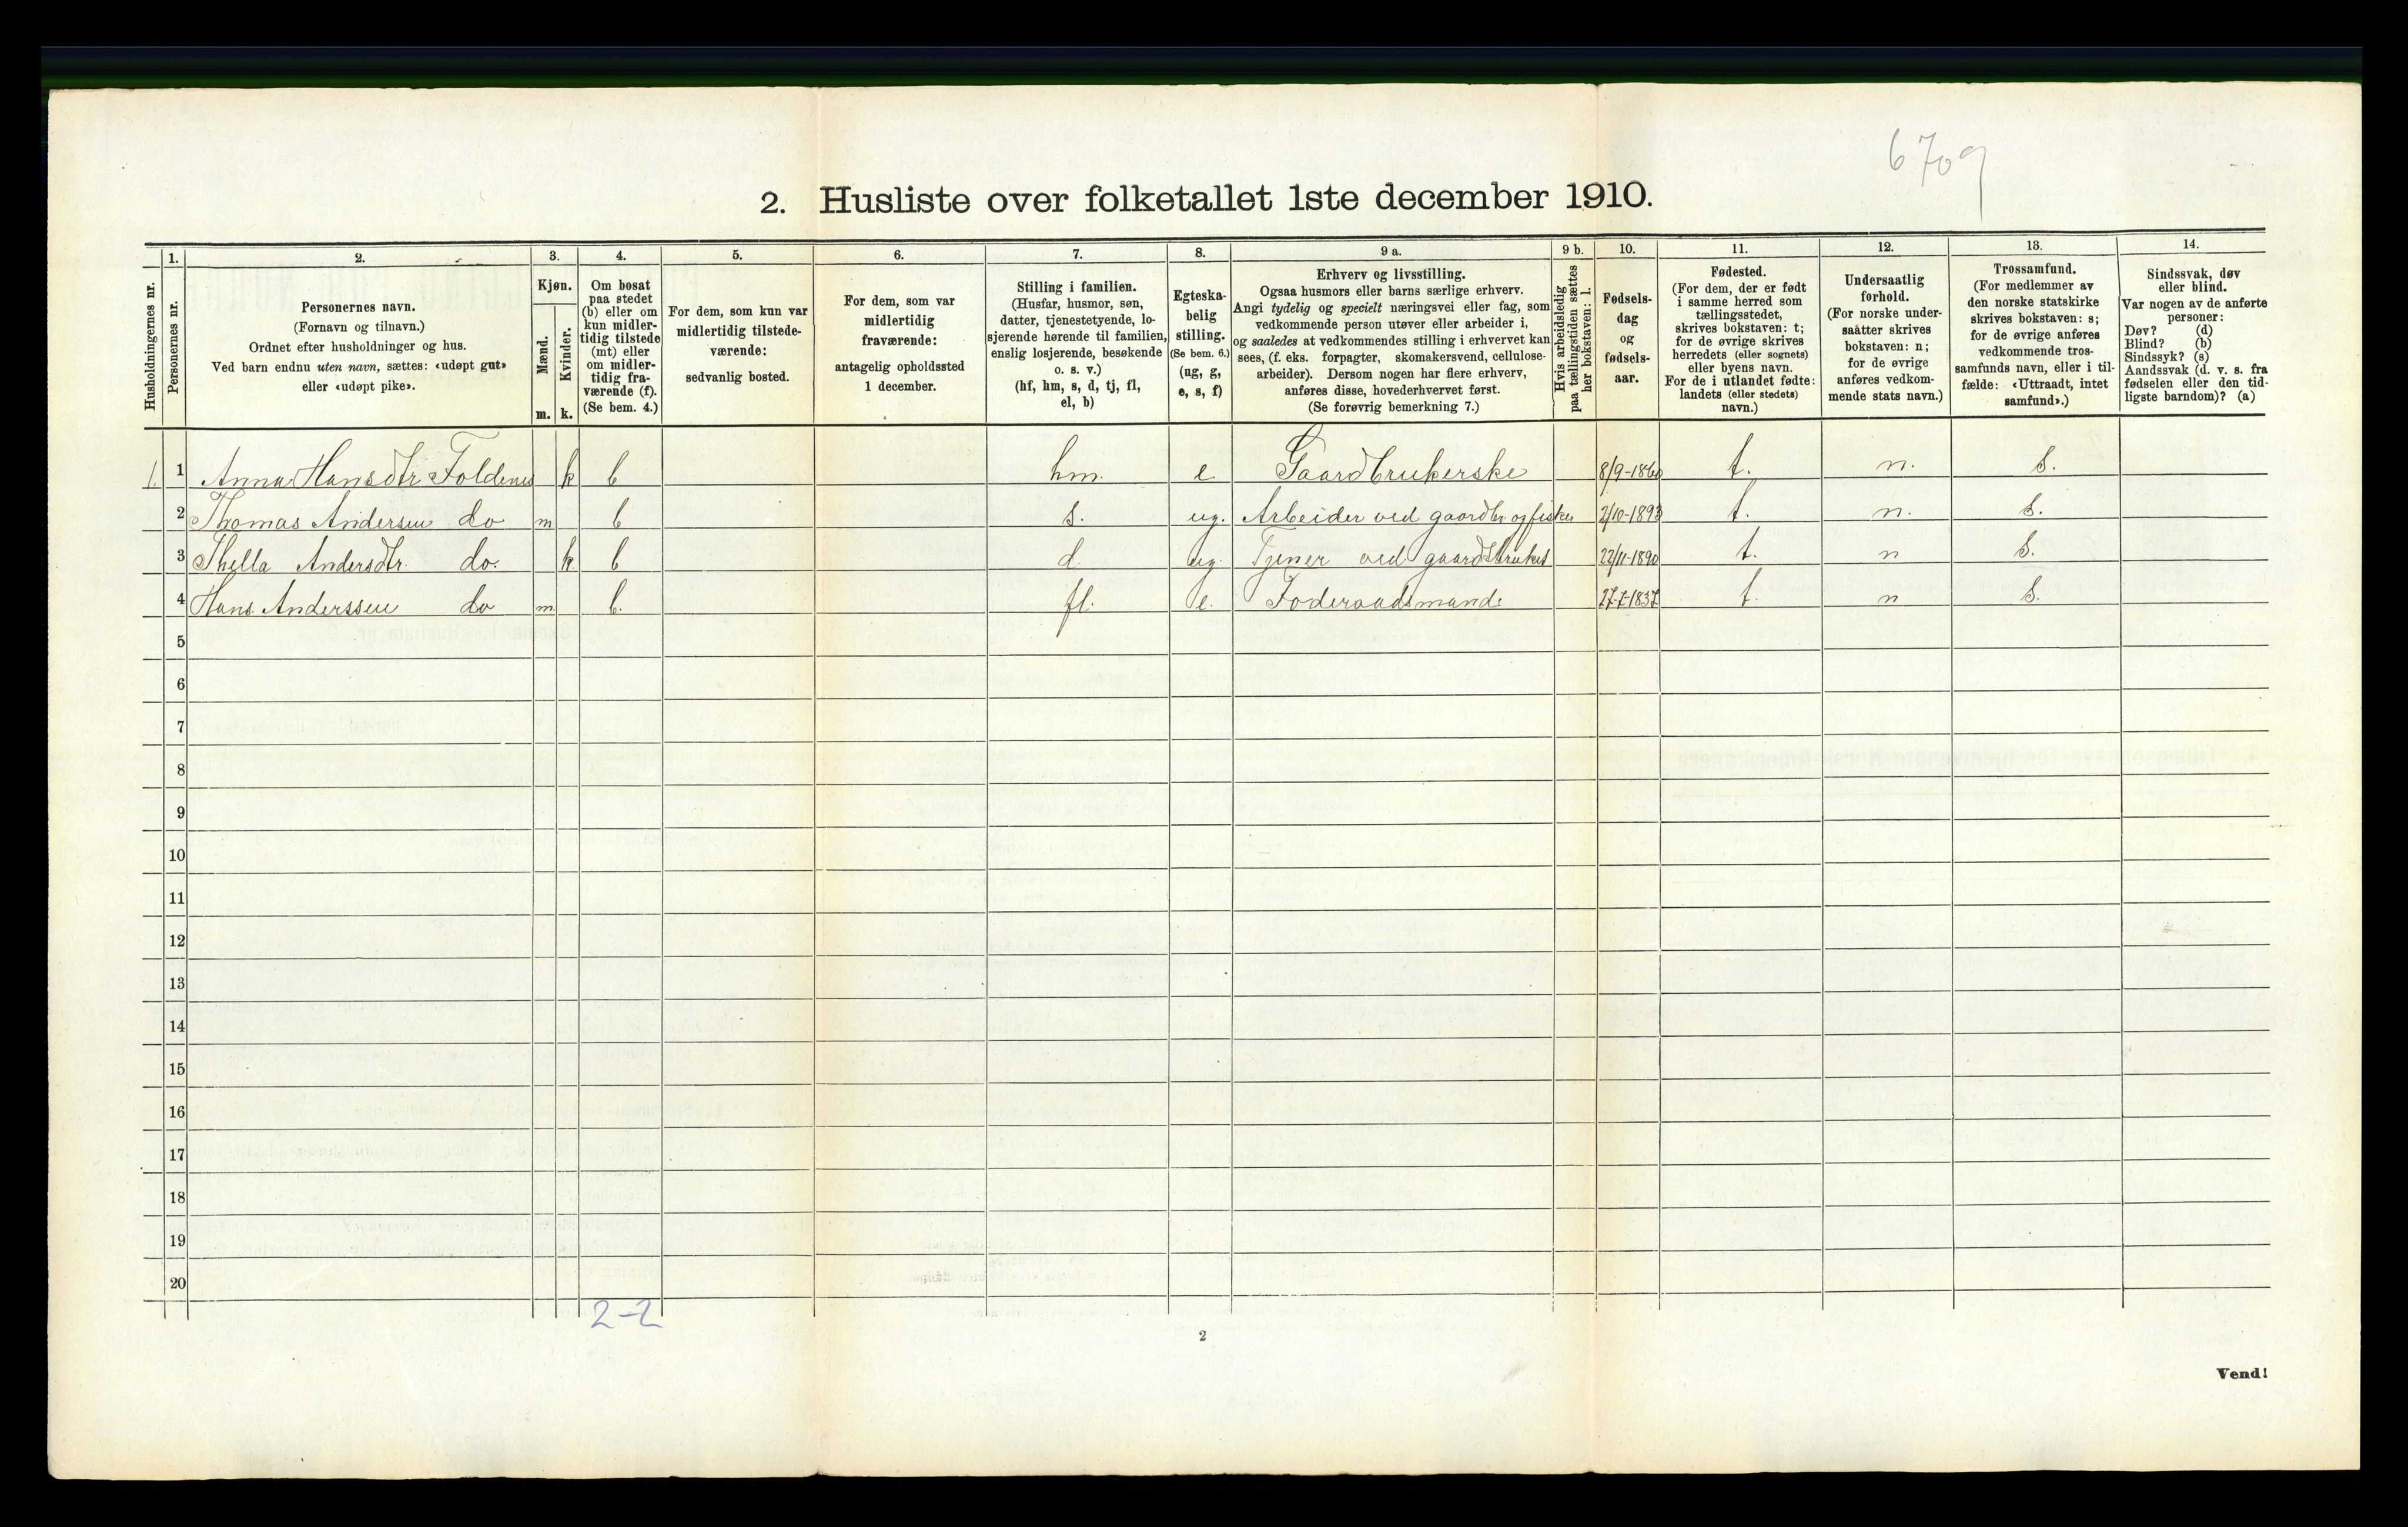 6709
2. Husliste over folketallet 1ste december 1910.
Husholdningernes nr.
1.
Personernes nr.
2.
Personernes navn.
(Fornavn og tilnavn.)
Ordnet efter husholdninger og hus.
Ved barn endnu uten navn, sættes: «udøpt gut»
eller «udøpt pike».
3.
Kjøn.
Mænd.
m.
Kvinder.
k.
4.
Om bosat
paa stedet
(b) eller om
kun midler-
tidig tilstede
(mt) eller
om midler-
tidig fra-
værende (f).
(Se bem. 4.)
5.
For dem, som kun var
midlertidig tilstede-
værende:
sedvanlig bosted.
6.
For dem, som var
midlertidig
fraværende:
antagelig opholdssted
1 december.
7.
Stilling i familien.
(Husfar, husmor, søn,
datter, tjenestetyende, lo-
sjerende hørende til familien,
enslig losjerende, besøkende
o. s. v.)
(hf, hm, s, d, tj, fl,
el, b)
8.
Egteska-
belig
stilling.
(Se bem. 6.)
(ug, g,
e, s, f)
9 a.
Erhverv og livsstilling.
Ogsaa husmors eller barns særlige erhverv.
Angi tydelig og specielt næringsvei eller fag, som
vedkommende person utøver eller arbeider i,
og saaledes at vedkommendes stilling i erhvervet kan
sees, (f. eks. forpagter, skomakersvend, cellulose-
arbeider). Dersom nogen har flere erhverv,
anføres disse, hovederhvervet først.
(Se forøvrig bemerkning 7.)
9 b.
Hvis arbeidsledig
paa tællingstiden sættes
her bokstaven: l.
10.
Fødsels-
dag
og
fødsels-
aar.
11.
Fødested.
(For dem, der er født
i samme herred som
tællingsstedet,
skrives bokstaven: t;
for de øvrige skrives
herredets (eller sognets)
eller byens navn.
For de i utlandet fødte:
landets (eller stedets)
navn.)
12.
Undersaatlig
forhold.
(For norske under-
saatter skrives
bokstaven: n;
for de øvrige
anføres vedkom-
mende stats navn.)
13.
Trossamfund.
(For medlemmer av
den norske statskirke
skrives bokstaven: s;
for de øvrige anføres
vedkommende tros-
samfunds navn, eller i til-
fælde: «Uttraadt, intet
samfund».)
14.
Sindssvak, døv
eller blind.
Var nogen av de anførte
personer:
Døv? (d)
Blind? (b)
Sindssyk? (s)
Aandssvak (d. v. s. fra
fødselen eller den tid-
ligste barndom)? (a)
1. 1 Anna Hansdtr Foldenes k b hm. e. Gaardbrukerske 8/9-1860 t. n. s.
2 Thomas Andersen do m b s. ug. Arbeider ved gaardbr. og fisker 2/10-1893 t. n. s.
3 Thella Andersdtr. do. k b d. ug. Tjener ved gaardsbruket 22/11-1890 t. n s.
4 Hans Anderssen do m b. fl. e. Foderaadsmand. 27-7-1837 t. n s.
5
6
7
8
9
10
11
12
13
14
15
16
17
18
19
20
2-2
2
Vend!